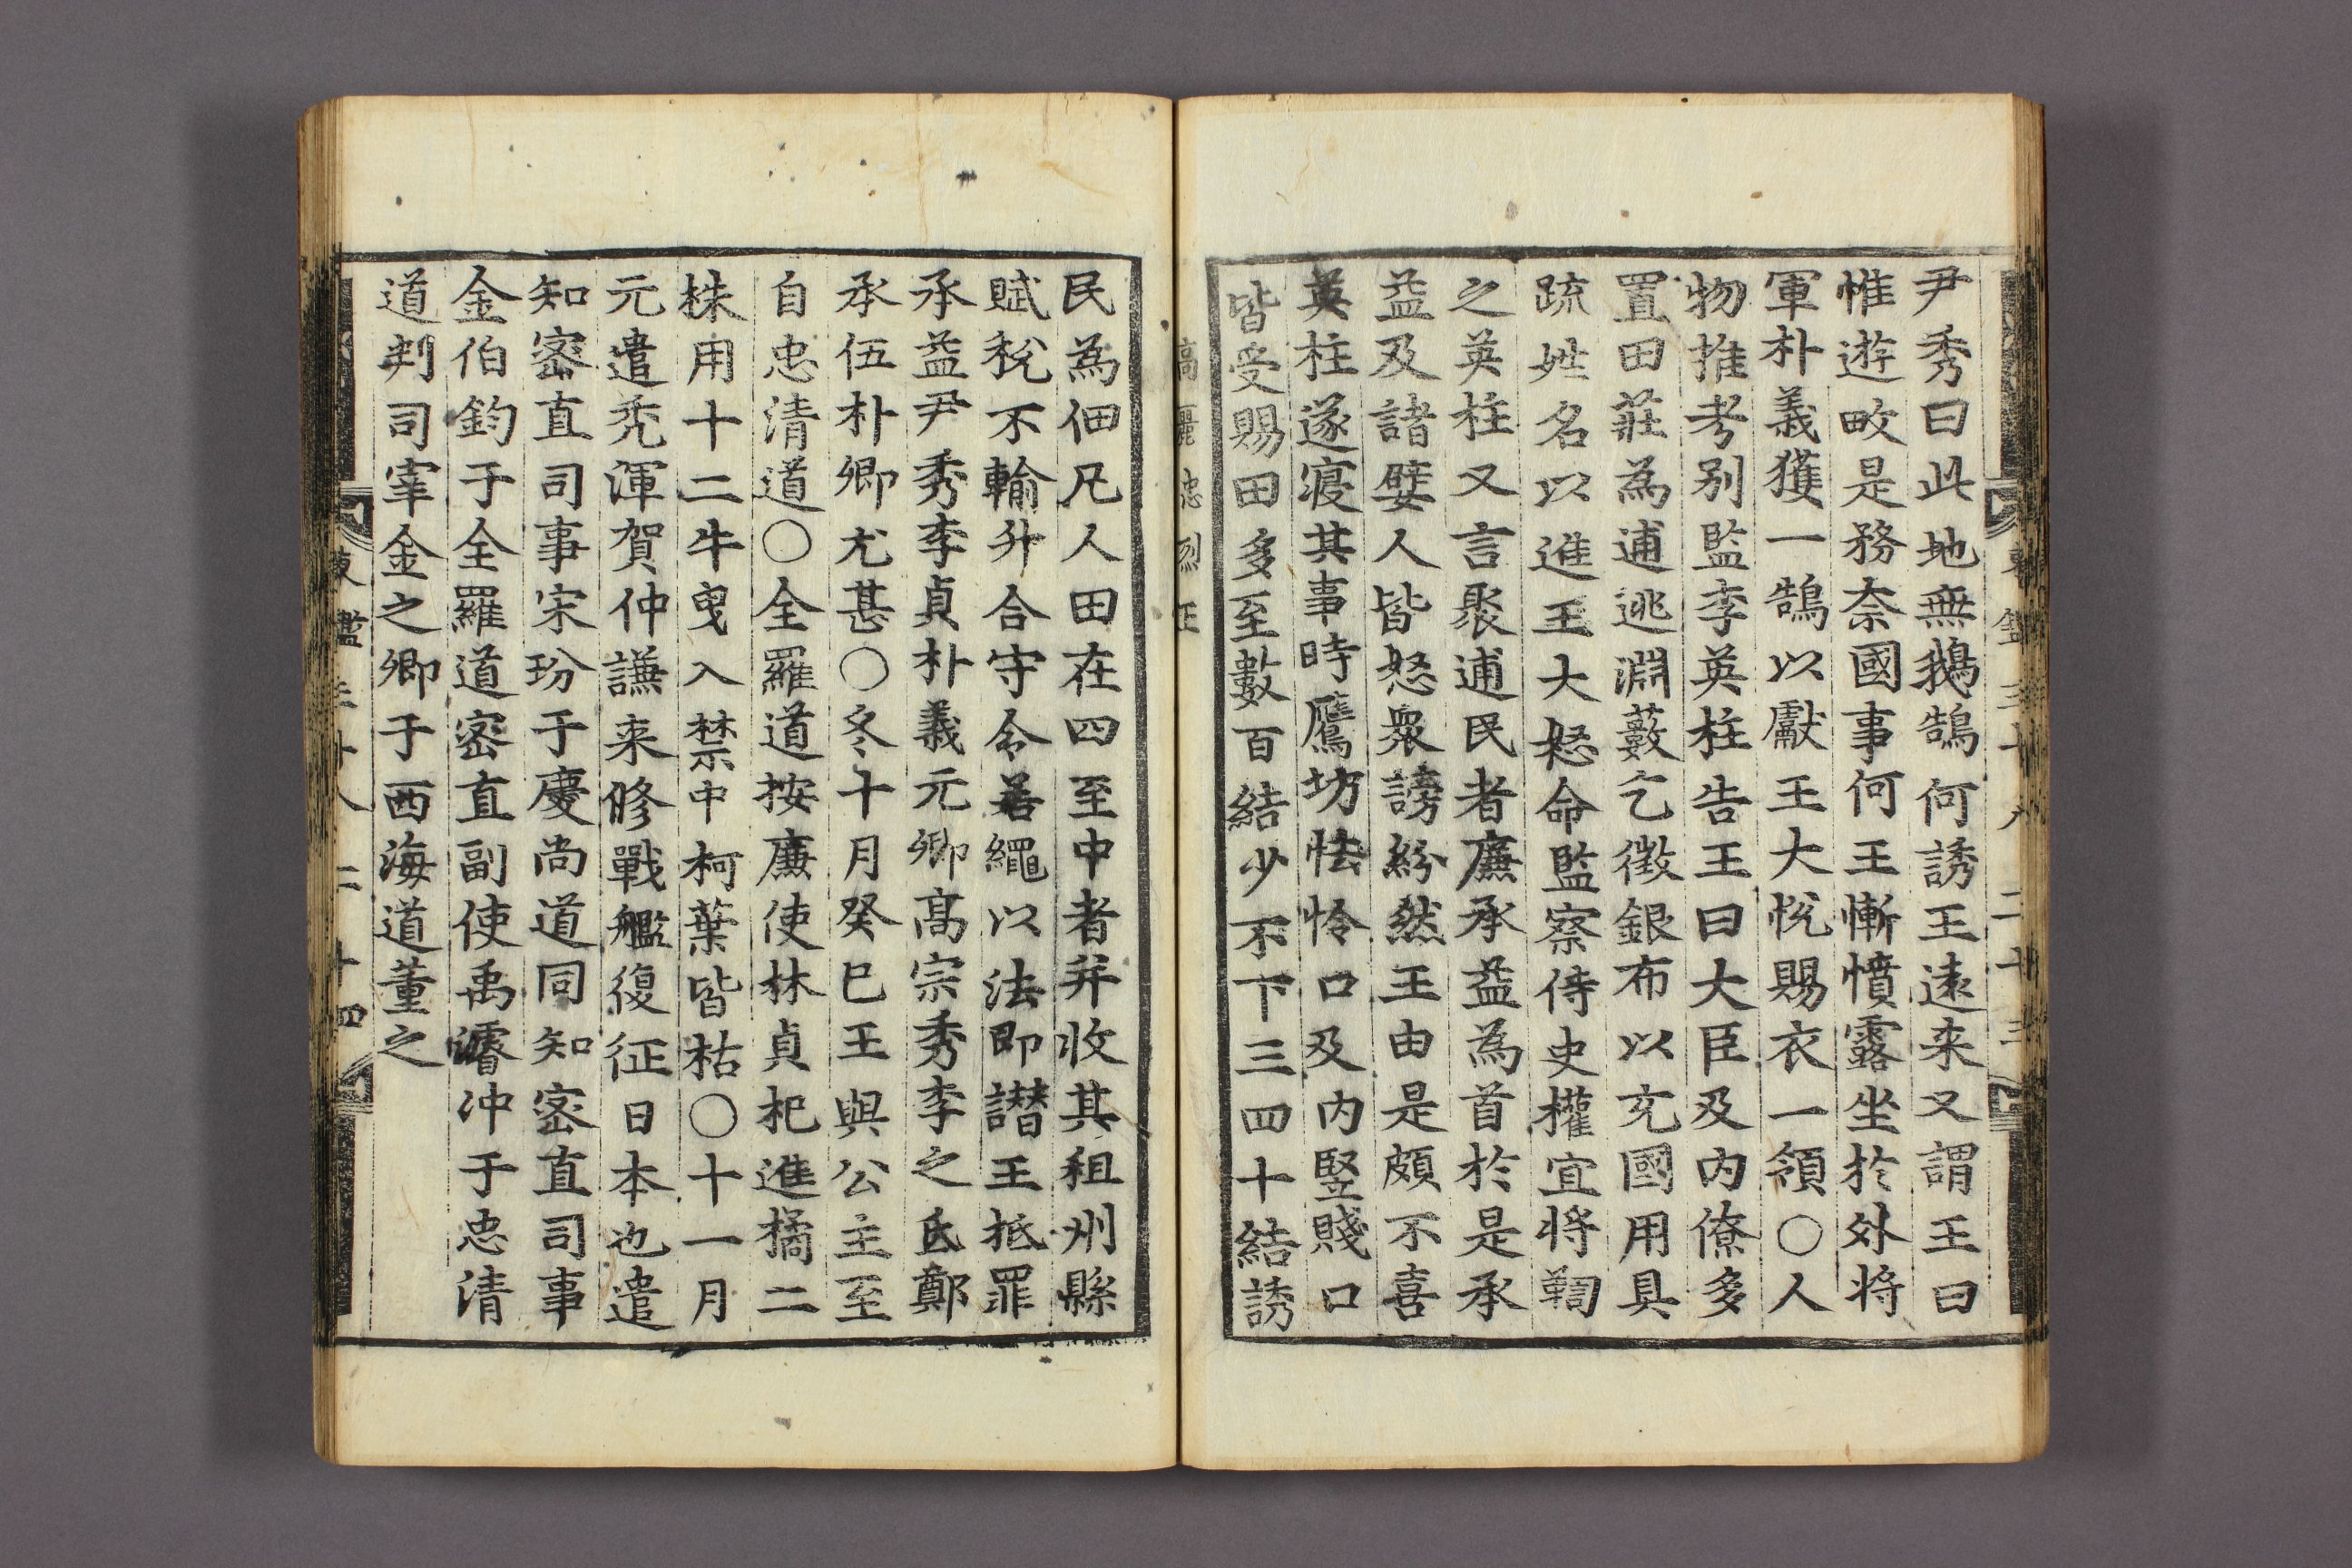 尹秀曰此地無鵝鵠何誘王遠来又謂王曰
惟遊畋是務奈國事何王慚憤露坐於外将
軍朴義獲一鵠以獻王大恱賜衣一領〇人
物推考别監李英柱告王曰大臣及内僚多
置田莊為逋逃淵藪乞徴銀布以充國用具
䟽姓名以進王大怒命監察侍史權宜将鞫
之英柱又言聚逋民者廉承益為首於是承
益及諸嬖人皆怒衆謗紛然王由是頗不喜
英柱遂寝其事時鷹坊怯怜口及内竪賤口
皆受賜田多至數百結少不下三四十結誘
高麗忠烈王
民為佃凡人田在四至中者并收其租州縣
賦稅不輸升合守令若繩以法即譖王抵罪
承益尹秀李貞朴義元卿高宗秀李之氐鄭
承伍朴卿尤甚〇冬十月癸巳王與公主至
自忠清道〇全羅道按廉使林貞杷進橘二
株用十二牛曳入禁中柯葉皆枯〇十一月
元遣禿渾賀仲謙来修戰艦復征日本也遣
知宻直司事宋玢于慶尚道同知宻直司事
金伯鈞于全羅道宻直副使禹濬冲于忠清
道判司宰金之卿于西海道董之
東鑑三十八 二十四